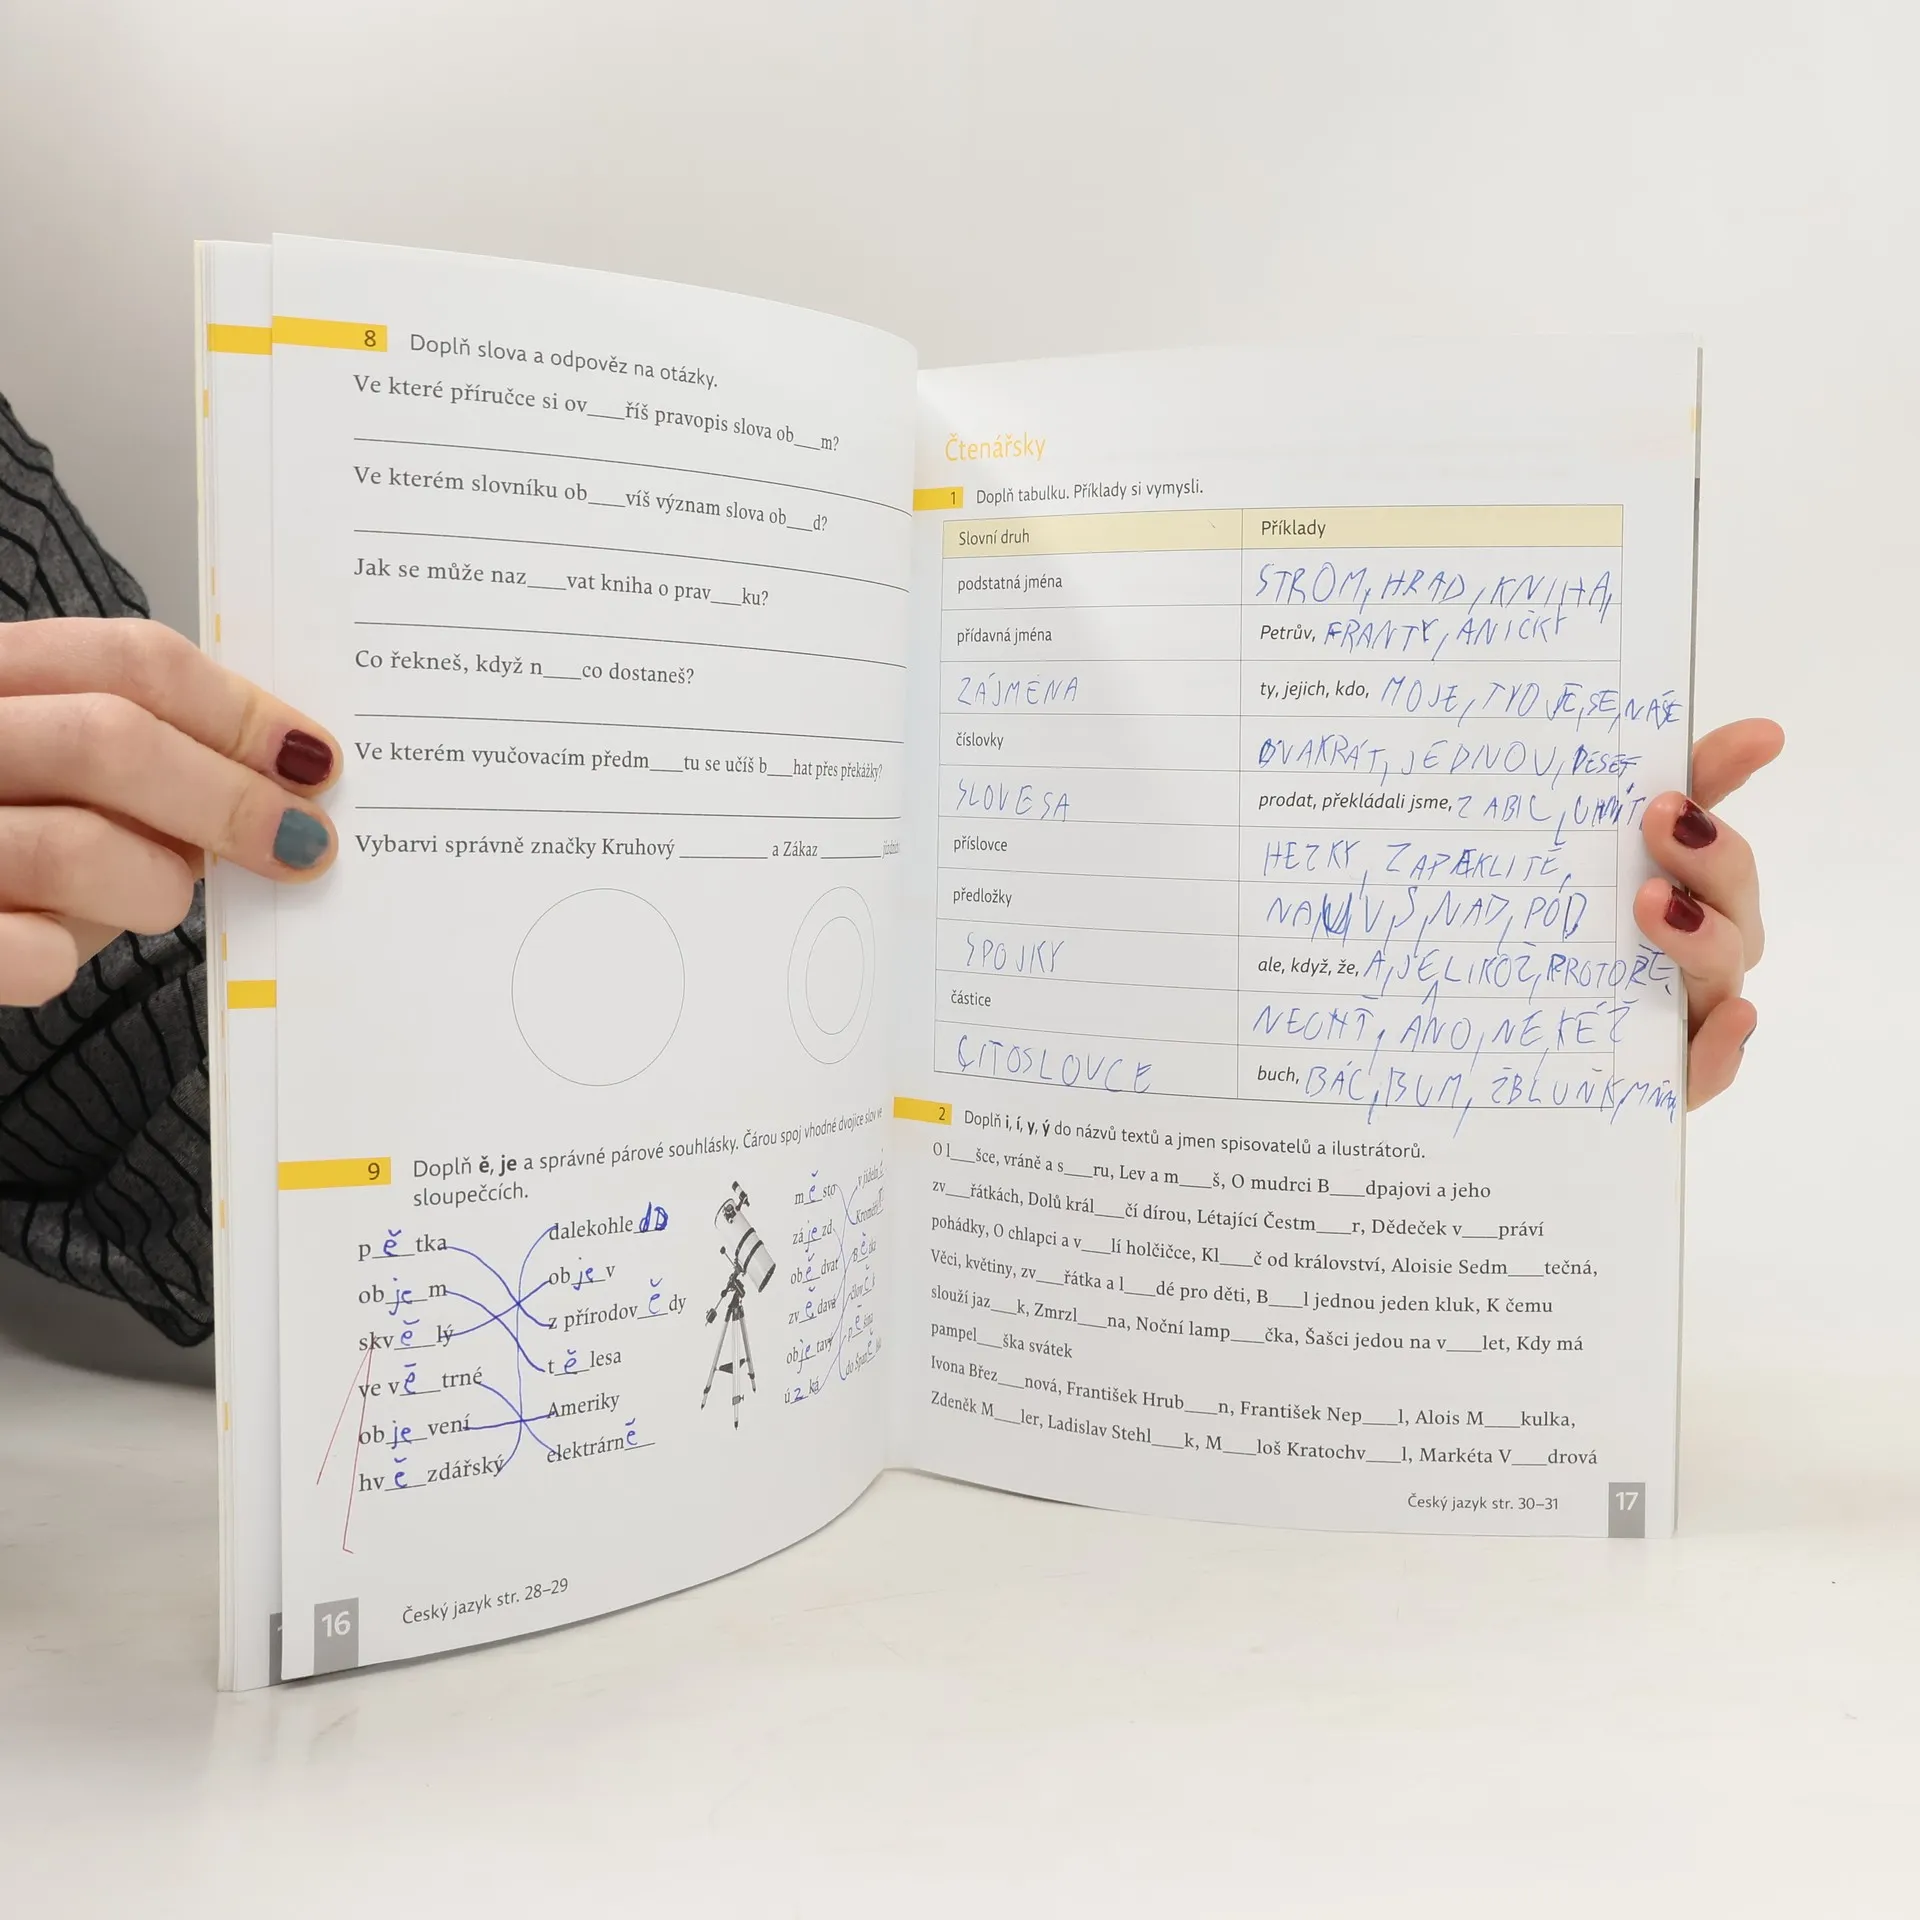 8 Doplň slova a odpověz na otázky.
Ve které příručce si ov___říš pravopis slova ob___m?
Ve kterém slovníku ob___víš význam slova ob___d?
Jak se může naz___vat kniha o prav___ku?
Co řekneš, když n___co dostaneš?
Ve kterém vyučovacím předm___tu se učíš b___hat přes překážky?
Vybarvi správně značky Kruhový ______ a Zákaz ______
9 Doplň ě, je a správné párové souhlásky. Čárou spoj vhodné dvojice slov ve
sloupečcích.
pětka
objem
skvělý
ve větrné
objevení
hvězdářský
dalekohled
objev
z přírodovědy
tělesa
Ameriky
elektrárně
město
zájezd
obědvat
objetavý
úzká
16 Český jazyk str. 28–29
Čtenářsky
1 Doplň tabulku. Příklady si vymysli.
Slovní druh Příklady
podstatná jména STROM, HRAD, KNIHA,
přídavná jména Petrův, FRANTY, ANIČKY
ZÁJMENA ty, jejich, kdo, MOJE, TVOJE, SE, NAŠE
číslovky DVAKRÁT, JEDNOU, DESET,
SLOVESA prodat, překládali jsme, ZABIL,
příslovce HEZKY, ZAPEKLITĚ,
předložky NA, V, S, NAD, POD
SPOJKY ale, když, že, A, JELIKOŽ, PROTOŽE,
částice NECHŤ, ANO, NE, KÉŽ
CITOSLOVCE buch, BÁC, BUM, ŽBLUŇK, MŇAU
2 Doplň i, í, y, ý do názvů textů a jmen spisovatelů a ilustrátorů.
O l___šce, vráně a s___ru, Lev a m___š, O mudrci B___dpajovi a jeho
zv___řátkách, Dolů král___čí dírou, Létající Čestm___r, Dědeček v___práví
pohádky, O chlapci a v___lí holčičce, Kl___č od království, Aloisie Sedm___tečná,
Věci, květiny, zv___řátka a l___dé pro děti, B___l jednou jeden kluk, K čemu
slouží jaz___k, Zmrzl___na, Noční lamp___čka, Šašci jedou na v___let, Kdy má
pampel___ška svátek
Ivona Břez___nová, František Hrub___n, František Nep___l, Alois M___kulka,
Zdeněk M___ler, Ladislav Stehl___k, M___loš Kratochv___l, Markéta V___drová
Český jazyk str. 30–31 17